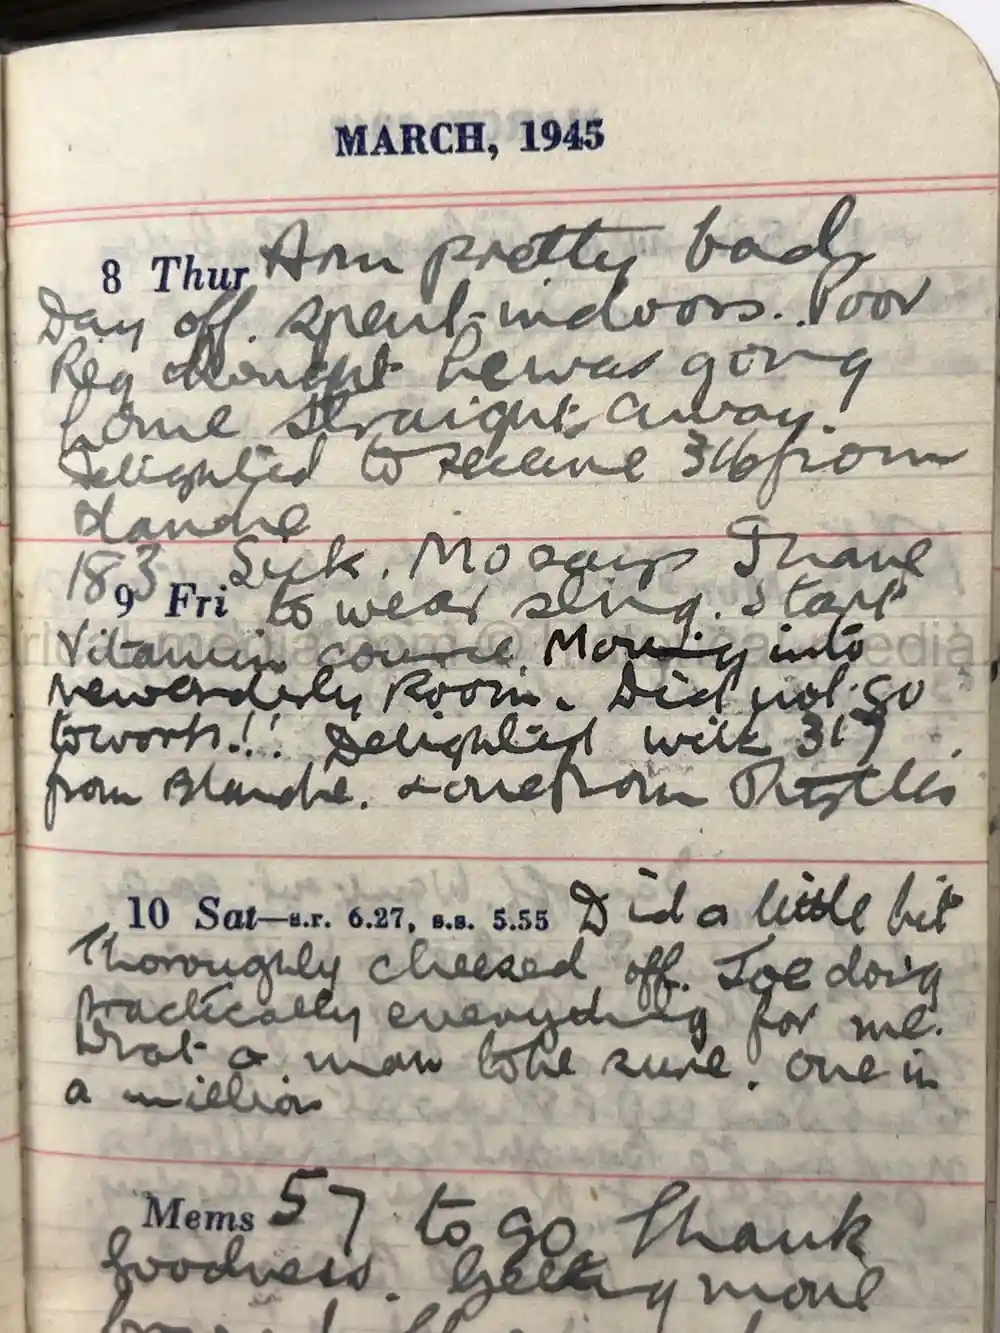 MARCH, 1945
8 Thur Arm pretty bad
Day off. spent indoors. Poor
Reg thought he was going
home straight away.
Delighted to receive 316 from
Blanche
183 Sick. MO says I have
9 Fri to wear sling. Start
Vitamin course. Moving into
new orderly Room. Did not go
to work!!! Delighted with 317
from Blanche. + one from Phyllis
10 Sat—s.r. 6.27, s.s. 5.55 Did a little bit
Thoroughly cheesed off. Joe doing
practically everything for me.
What a man to be sure. One in
a million
Mems 57 to go Thank
goodness. Getting more